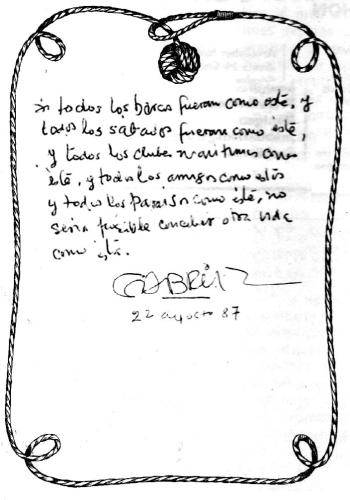 Si todos los barcos fueran como este, y
todos los sabados fueran como éste,
y todos los clubes maritimos como
éste, y todos los amigos como estos
y todos los paraisos como éste, no
seria posible concebir otra vida
como ésta.
GABRIEL
22 agosto 87
HON